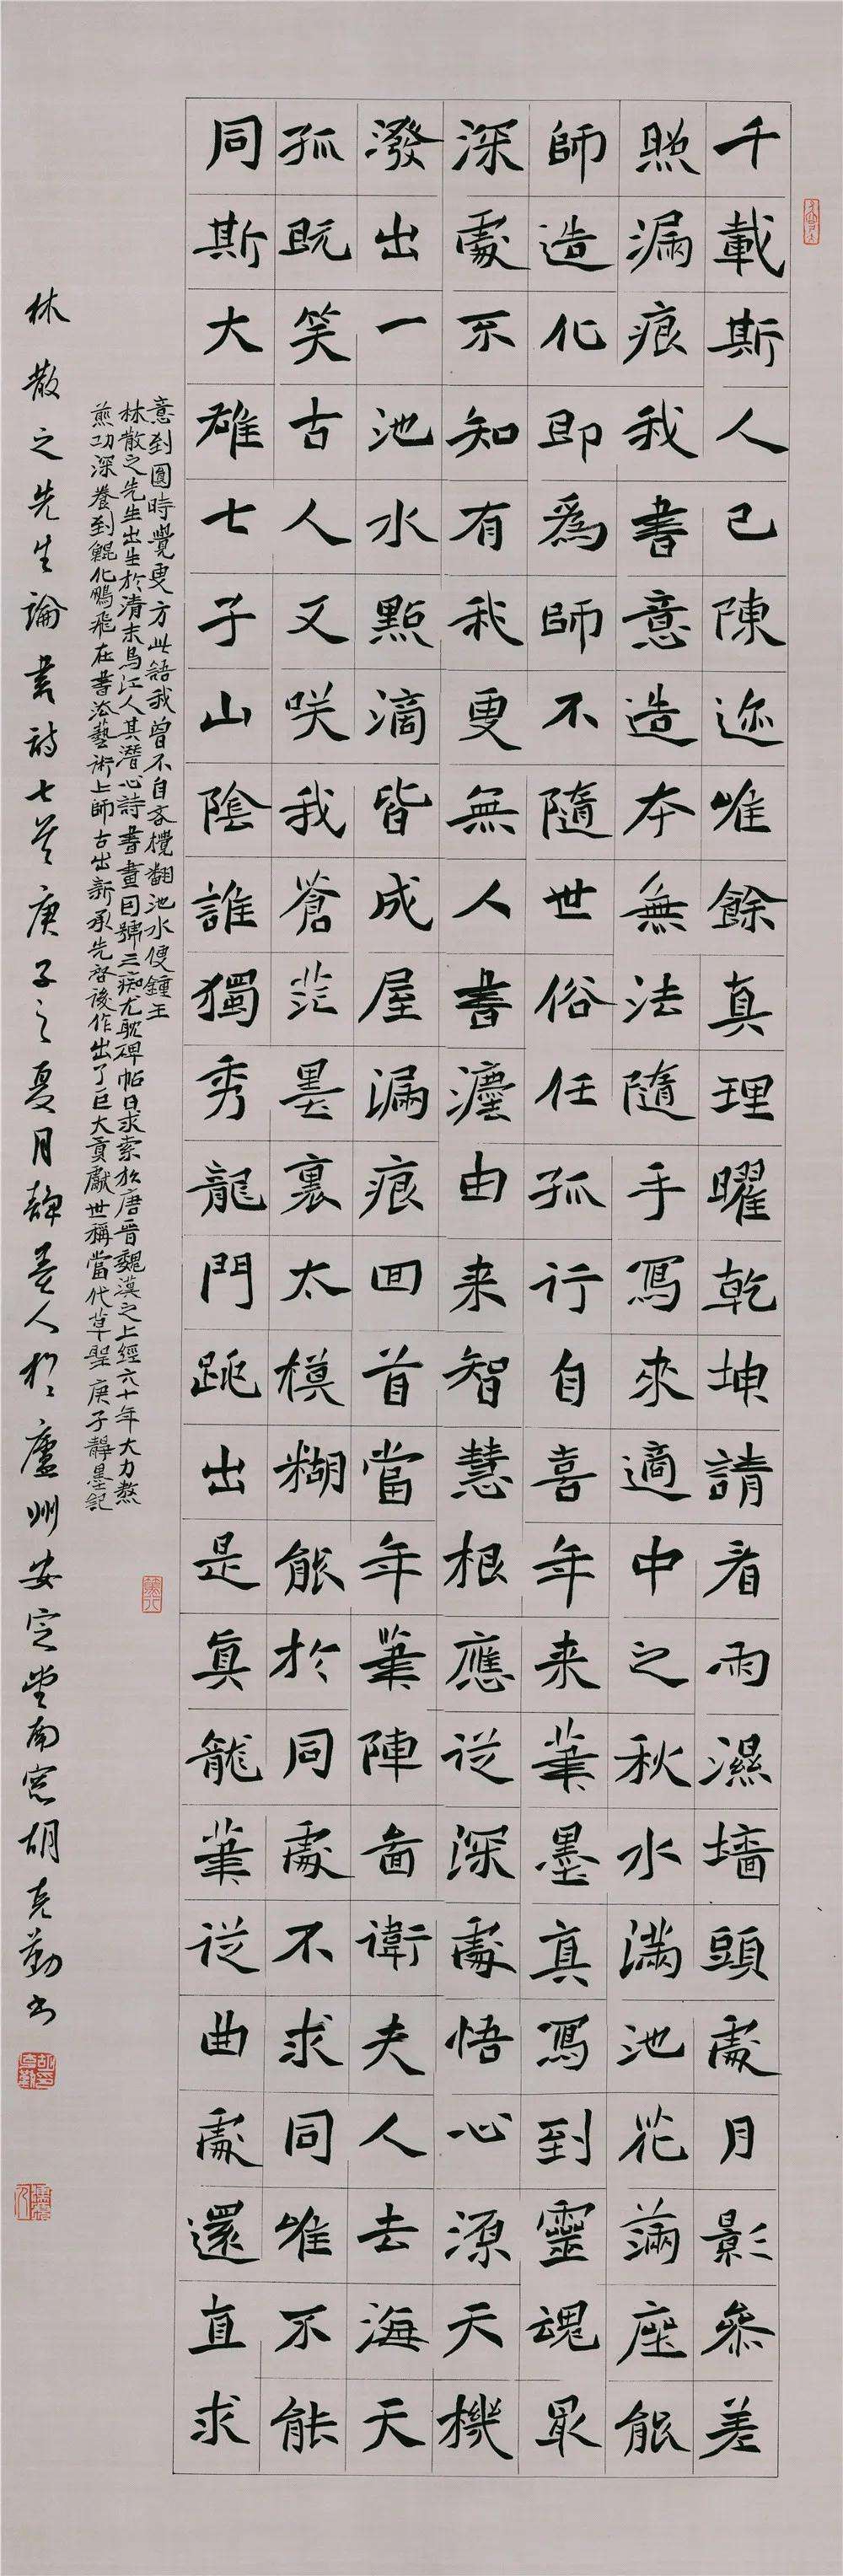 千載斯人已陳迹唯餘真理曜乾坤請看雨濕墻頭處月影參差
照漏痕我書意造本無法隨手寫來適中之秋水滿池花滿座能
師造化即為師不隨世俗任孤行自喜年来筆墨真寫到靈魂最
深處不知有我更無人書瀍由来智慧根應從深處悟心源天機
潑出一池水點滴皆成屋漏痕回首當年筆陣畫衛夫人去海天
孤既笑古人又咲我蒼茫墨裏太模糊能於同處不求同唯不能
同斯大雄七子山陰誰獨秀龍門跳出是真龍筆從曲處還直求
意到圓時覺更方此語我曾不自吝攪翻池水便鍾王
林散之先生出生於清末烏江人其潛心詩書畫自號三痴尤耽碑帖日求索於唐晉魏漢之上經六十年大力熬
煎功深養到鯤化鵬飛在書法藝術上師古出新承先啓後作出了巨大貢獻世稱當代草聖庚子靜墨記
林散之先生論書詩七首庚子之夏月靜墨人於廬州安定堂南窓胡克勤书